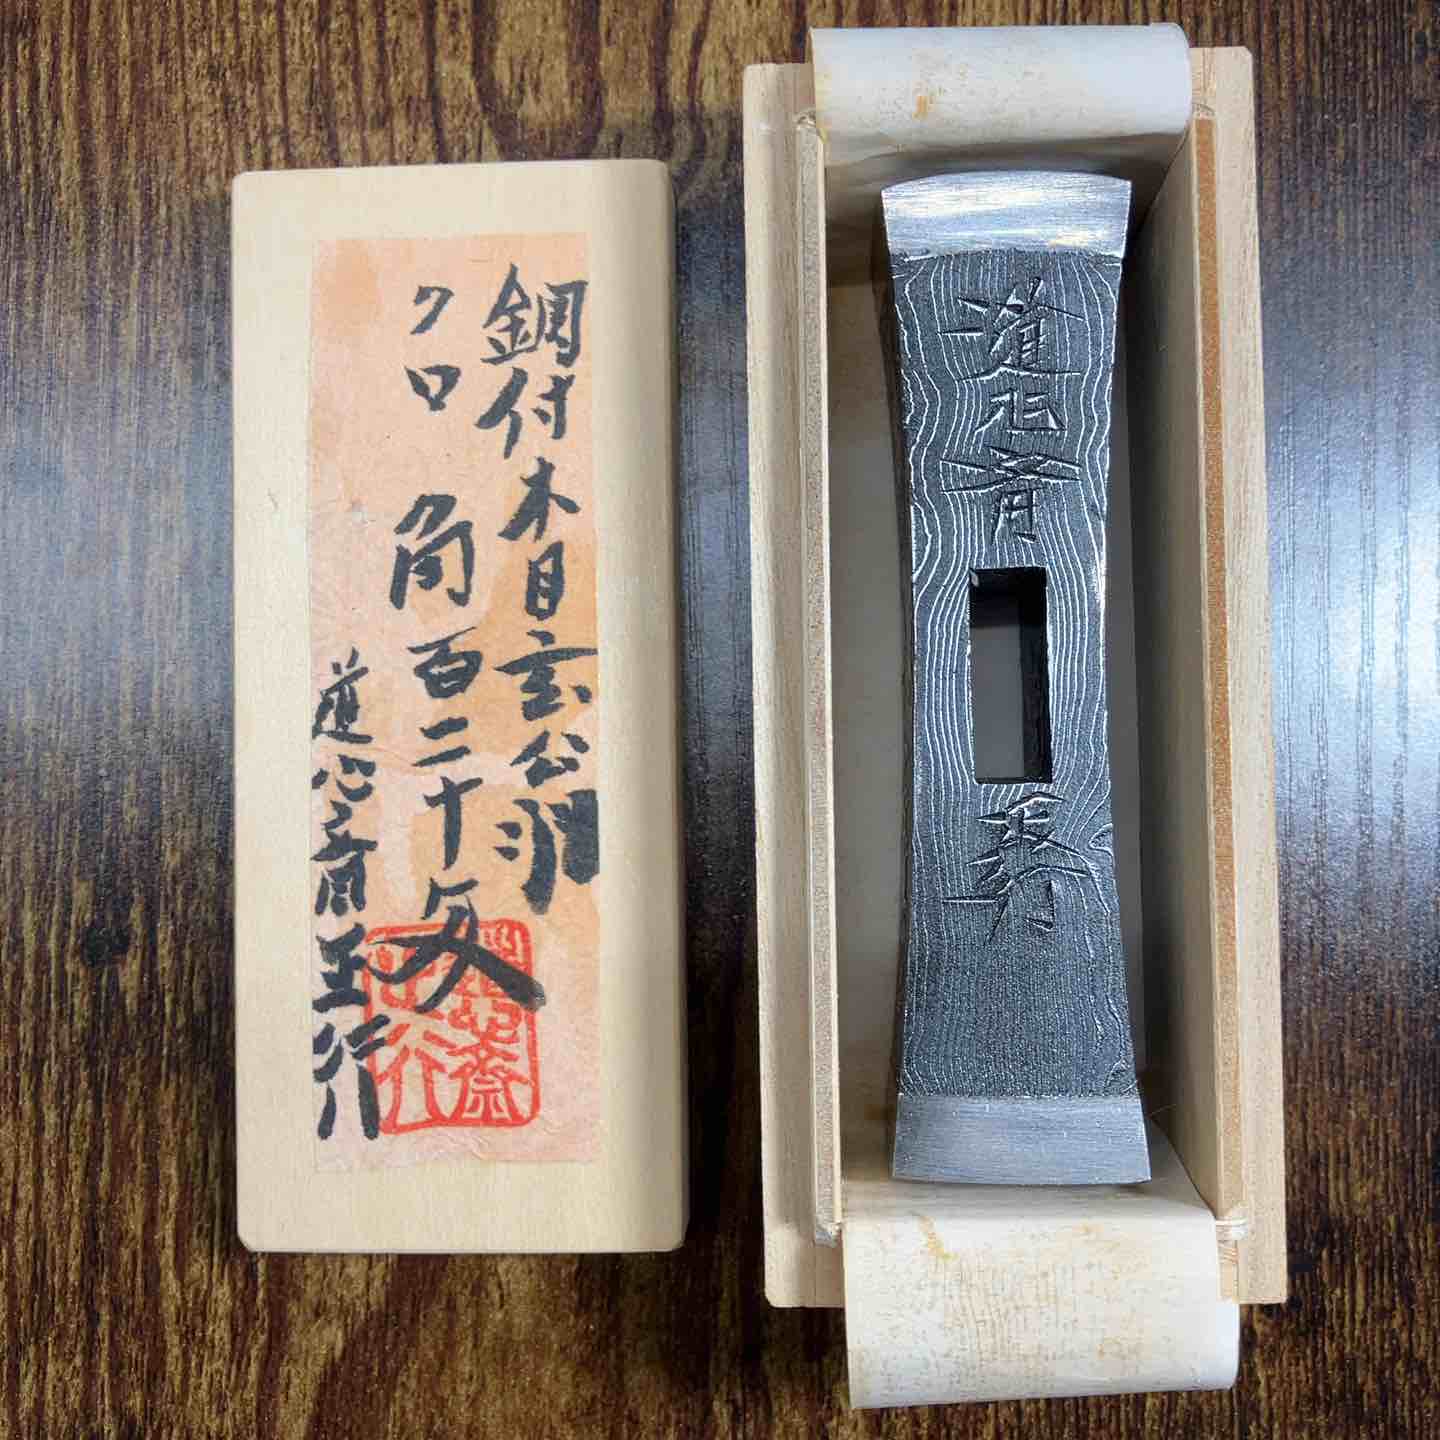 鋼付木目玄翁
クロ 角百二十匁
道心斎正行
道心斎
正行
道心斎
正行